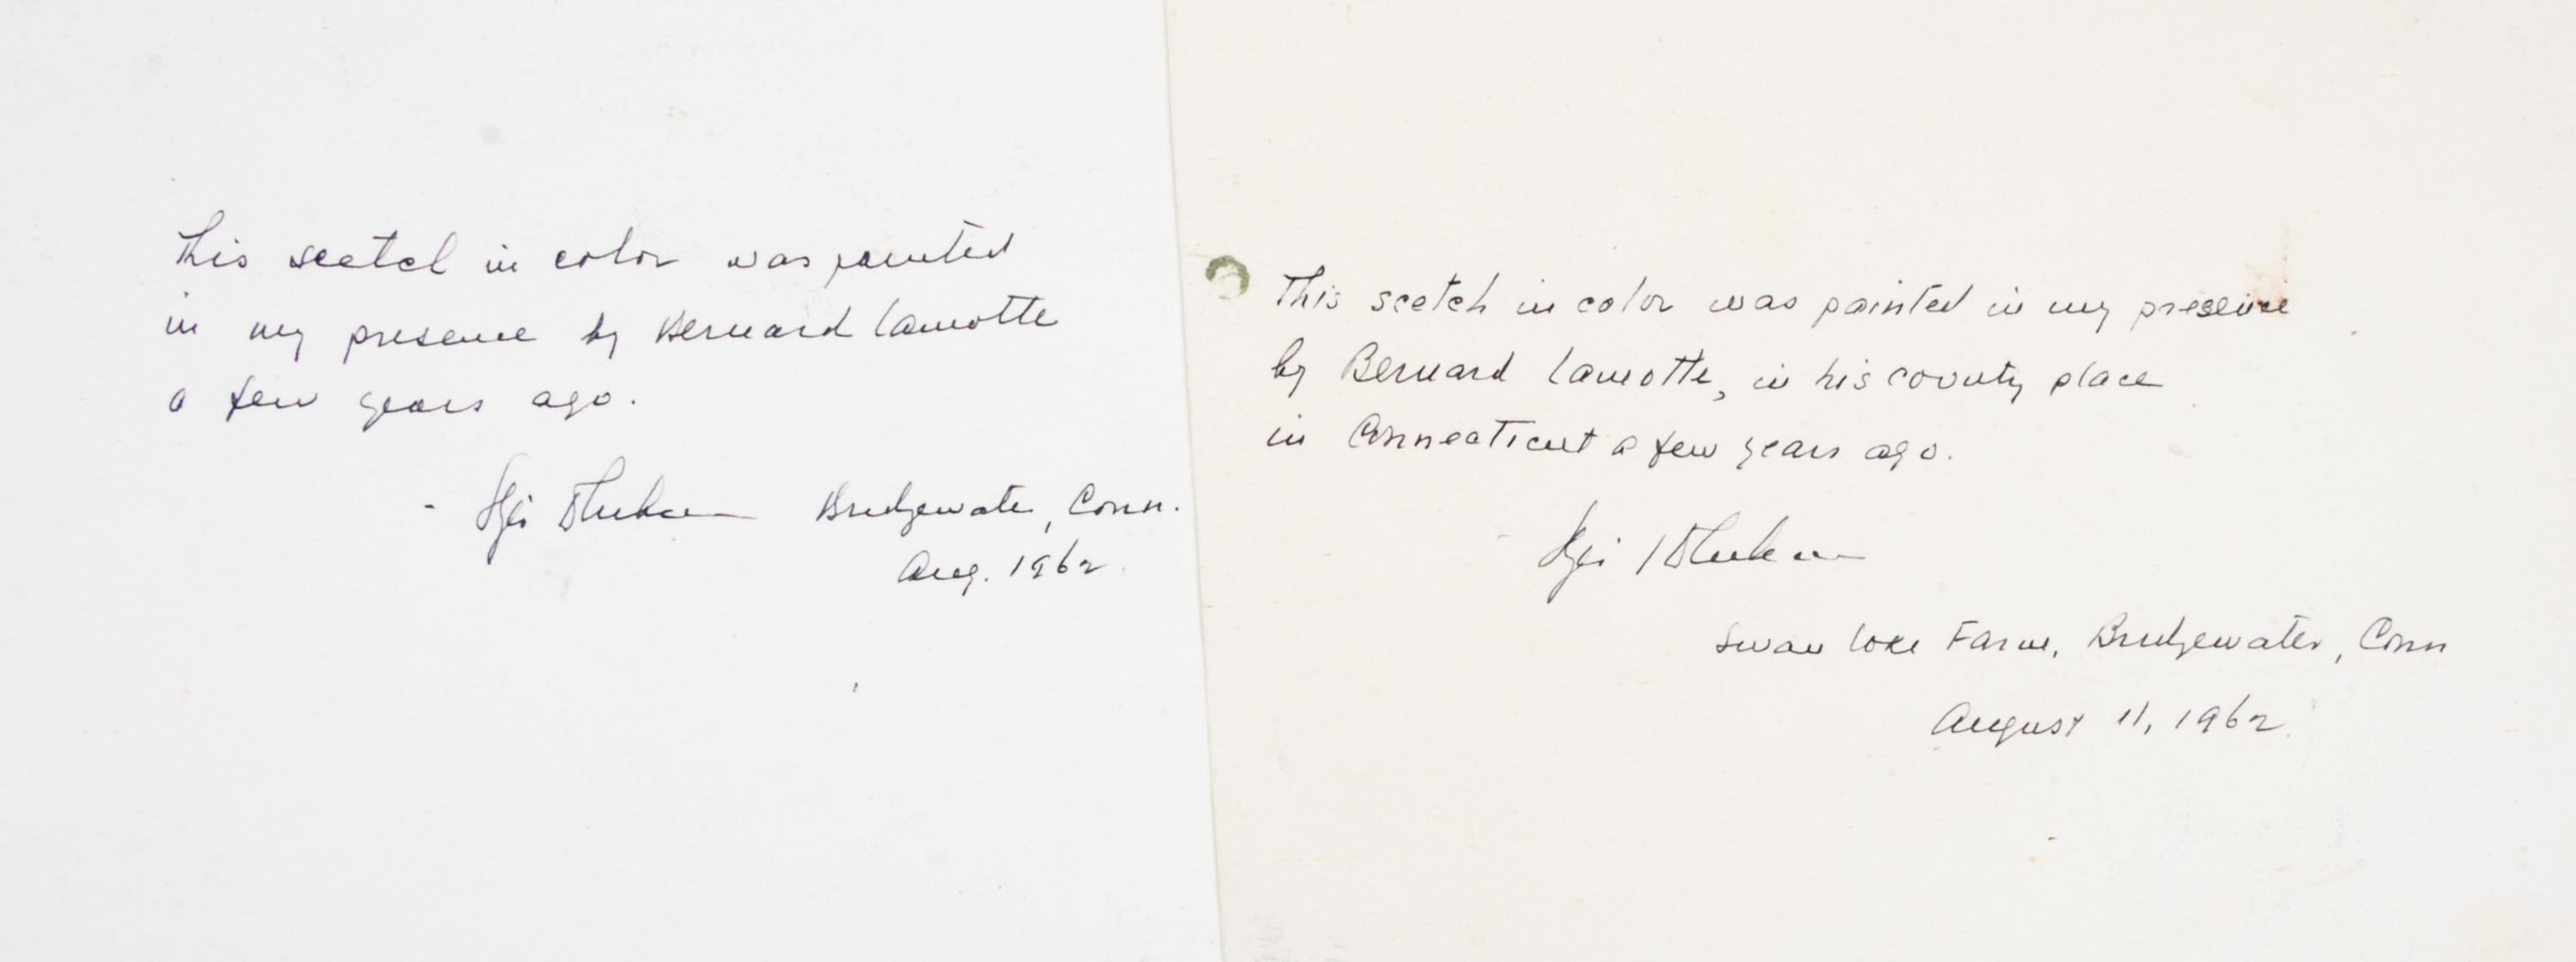 This scetch in color was painted
in my presence by Bernard Lamotte
a few years ago.
- Bridgewater, Conn.
Aug. 1962.
This scetch in color was painted in my presence
by Bernard Lamotte, in his county place
in Connecticut a few years ago.
Swan Lake Farm, Bridgewater, Conn
August 11, 1962.